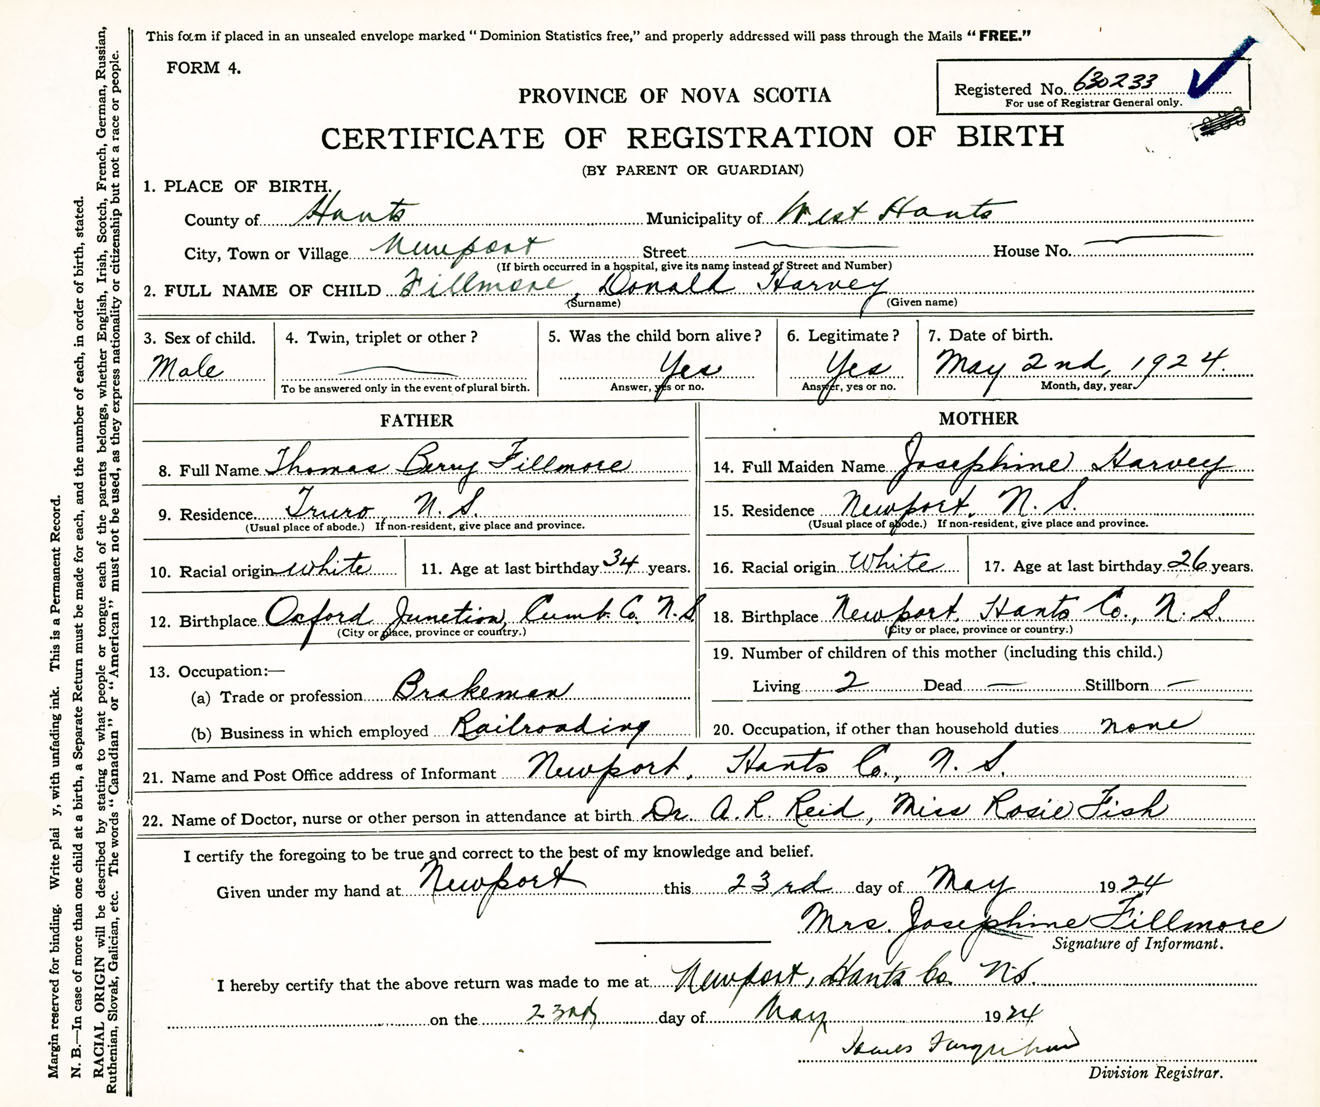 This form if placed in an unsealed envelope marked "Dominion Statistics free," and properly addressed will pass through the Mails "FREE."
FORM 4.
Registered No. 630233
For use of Registrar General only.
PROVINCE OF NOVA SCOTIA
CERTIFICATE OF REGISTRATION OF BIRTH
(BY PARENT OR GUARDIAN)
1. PLACE OF BIRTH.
County of Hants Municipality of West Hants
City, Town or Village Newport Street House No.
(If birth occurred in a hospital, give its name instead of Street and Number)
2. FULL NAME OF CHILD Fillmore, Donald Harvey
(Surname) (Given name)
3. Sex of child. 4. Twin, triplet or other? 5. Was the child born alive? 6. Legitimate? 7. Date of birth.
Male — Yes Yes May 2nd, 1924.
To be answered only in the event of plural birth. Answer, yes or no. Answer, yes or no. Month, day, year.
FATHER MOTHER
8. Full Name Thomas Berry Fillmore 14. Full Maiden Name Josephine Harvey
9. Residence Truro N.S. 15. Residence Newport, N.S.
(Usual place of abode.) If non-resident, give place and province. (Usual place of abode.) If non-resident, give place and province.
10. Racial origin white 11. Age at last birthday 34 years. 16. Racial origin White 17. Age at last birthday 26 years.
12. Birthplace Oxford Junction, Cumb. Co. N.S 18. Birthplace Newport, Hants Co., N.S.
(City or place, province or country.) (City or place, province or country.)
13. Occupation:— 19. Number of children of this mother (including this child.)
(a) Trade or profession Brakeman Living 2 Dead — Stillborn —
(b) Business in which employed Railroading 20. Occupation, if other than household duties none
21. Name and Post Office address of Informant Newport, Hants Co., N.S.
22. Name of Doctor, nurse or other person in attendance at birth Dr. A. R. Reid, Miss Rosie Fish
I certify the foregoing to be true and correct to the best of my knowledge and belief.
Given under my hand at Newport this 23rd day of May 1924
Mrs. Josephine Fillmore
Signature of Informant.
I hereby certify that the above return was made to me at Newport, Hants Co. N.S.
on the 23rd day of May 1924
James Farquhar
Division Registrar.
Margin reserved for binding. Write plai y, with unfading ink. This is a Permanent Record.
N. B.—In case of more than one child at a birth, a Separate Return must be made for each, and the number of each, in order of birth, stated.
RACIAL ORIGIN will be described by stating to what people or tongue each of the parents belongs, whether English, Irish, Scotch, French, German, Russian,
Ruthenian, Slovak, Galician, etc. The words "Canadian" or "American" must not be used, as they express nationality or citizenship but not a race or people.